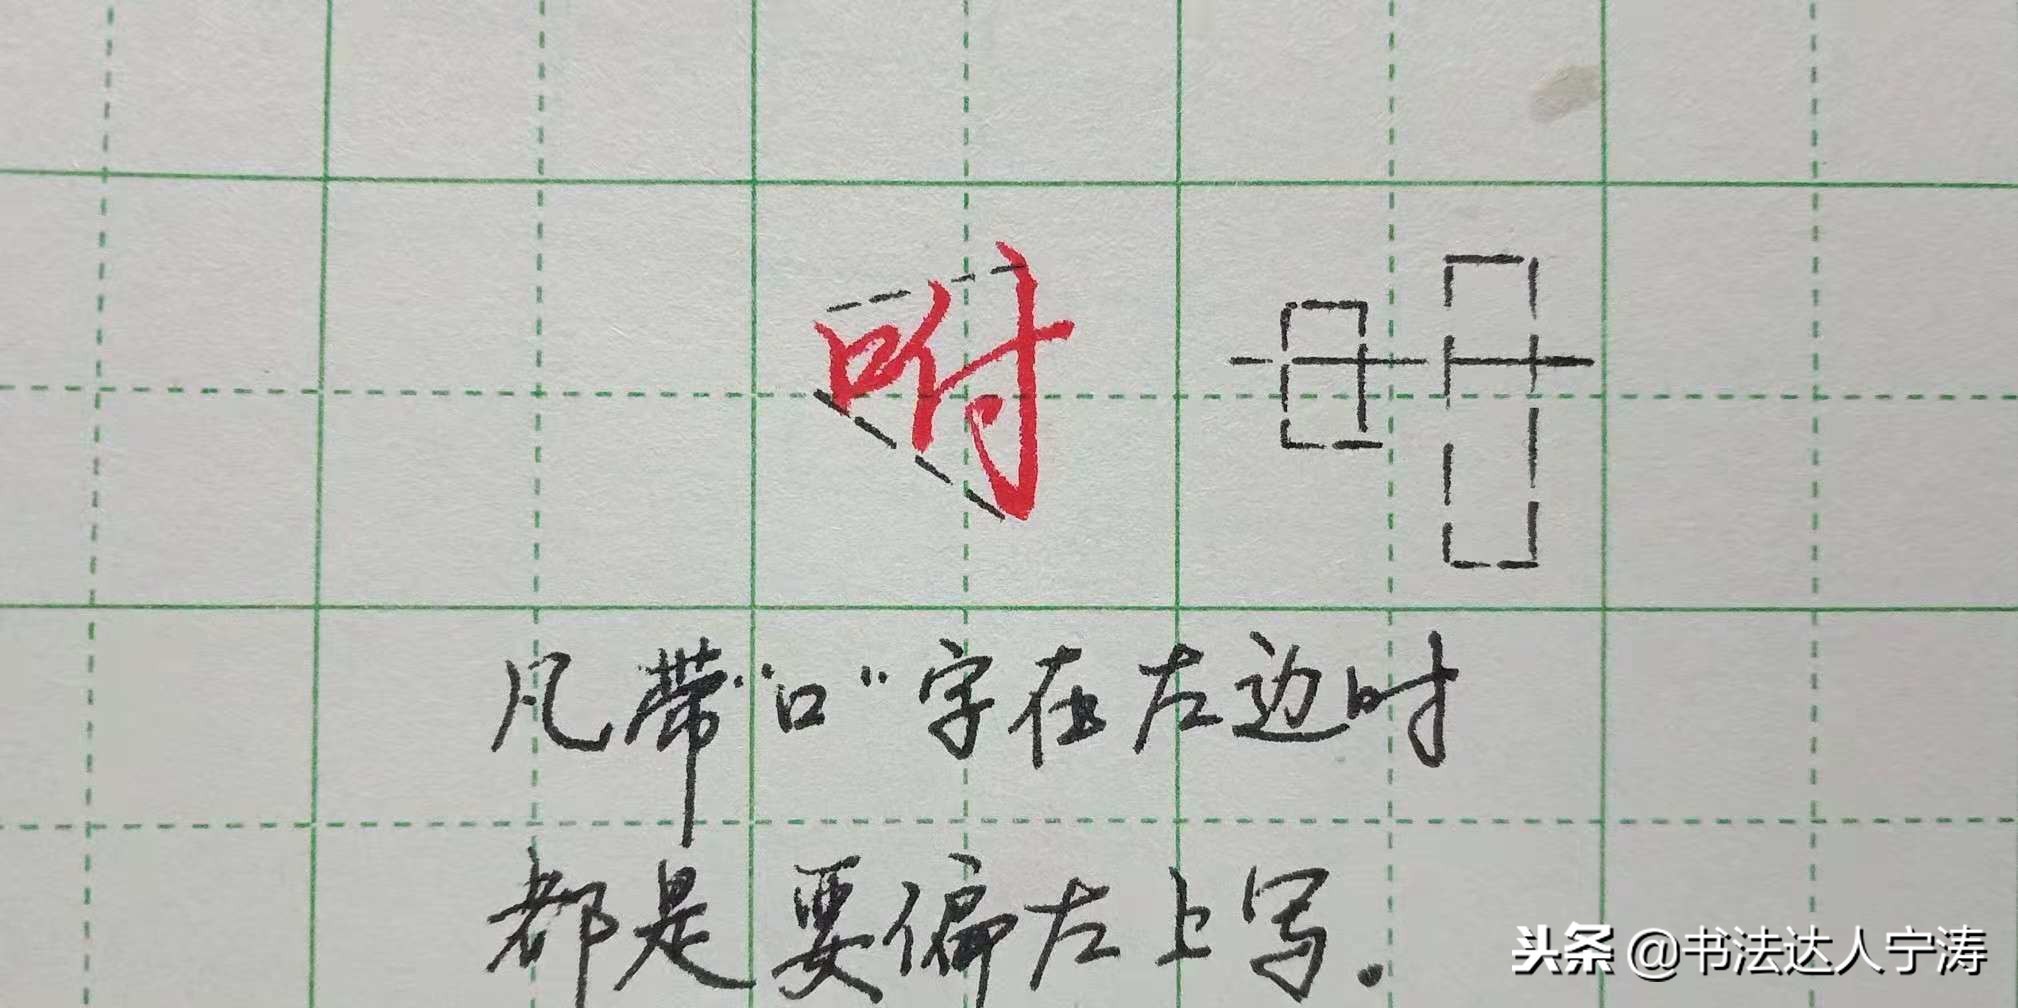 咐
凡带“口”字在左边时
都是要偏左上写.
头条 @书法达人宁涛